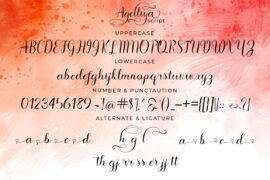 Agelliya
script
UPPERCASE
ABCDEFGHIJKLMNOPQRSTUVWXYZ
LOWERCASE
abcdefghijklmnopqrstuvwxyz
NUMBER & PUNCTUATION
ALTERNATE & LIGATURE
a b c d h g l a b c d
th gj rr ss er jj tt